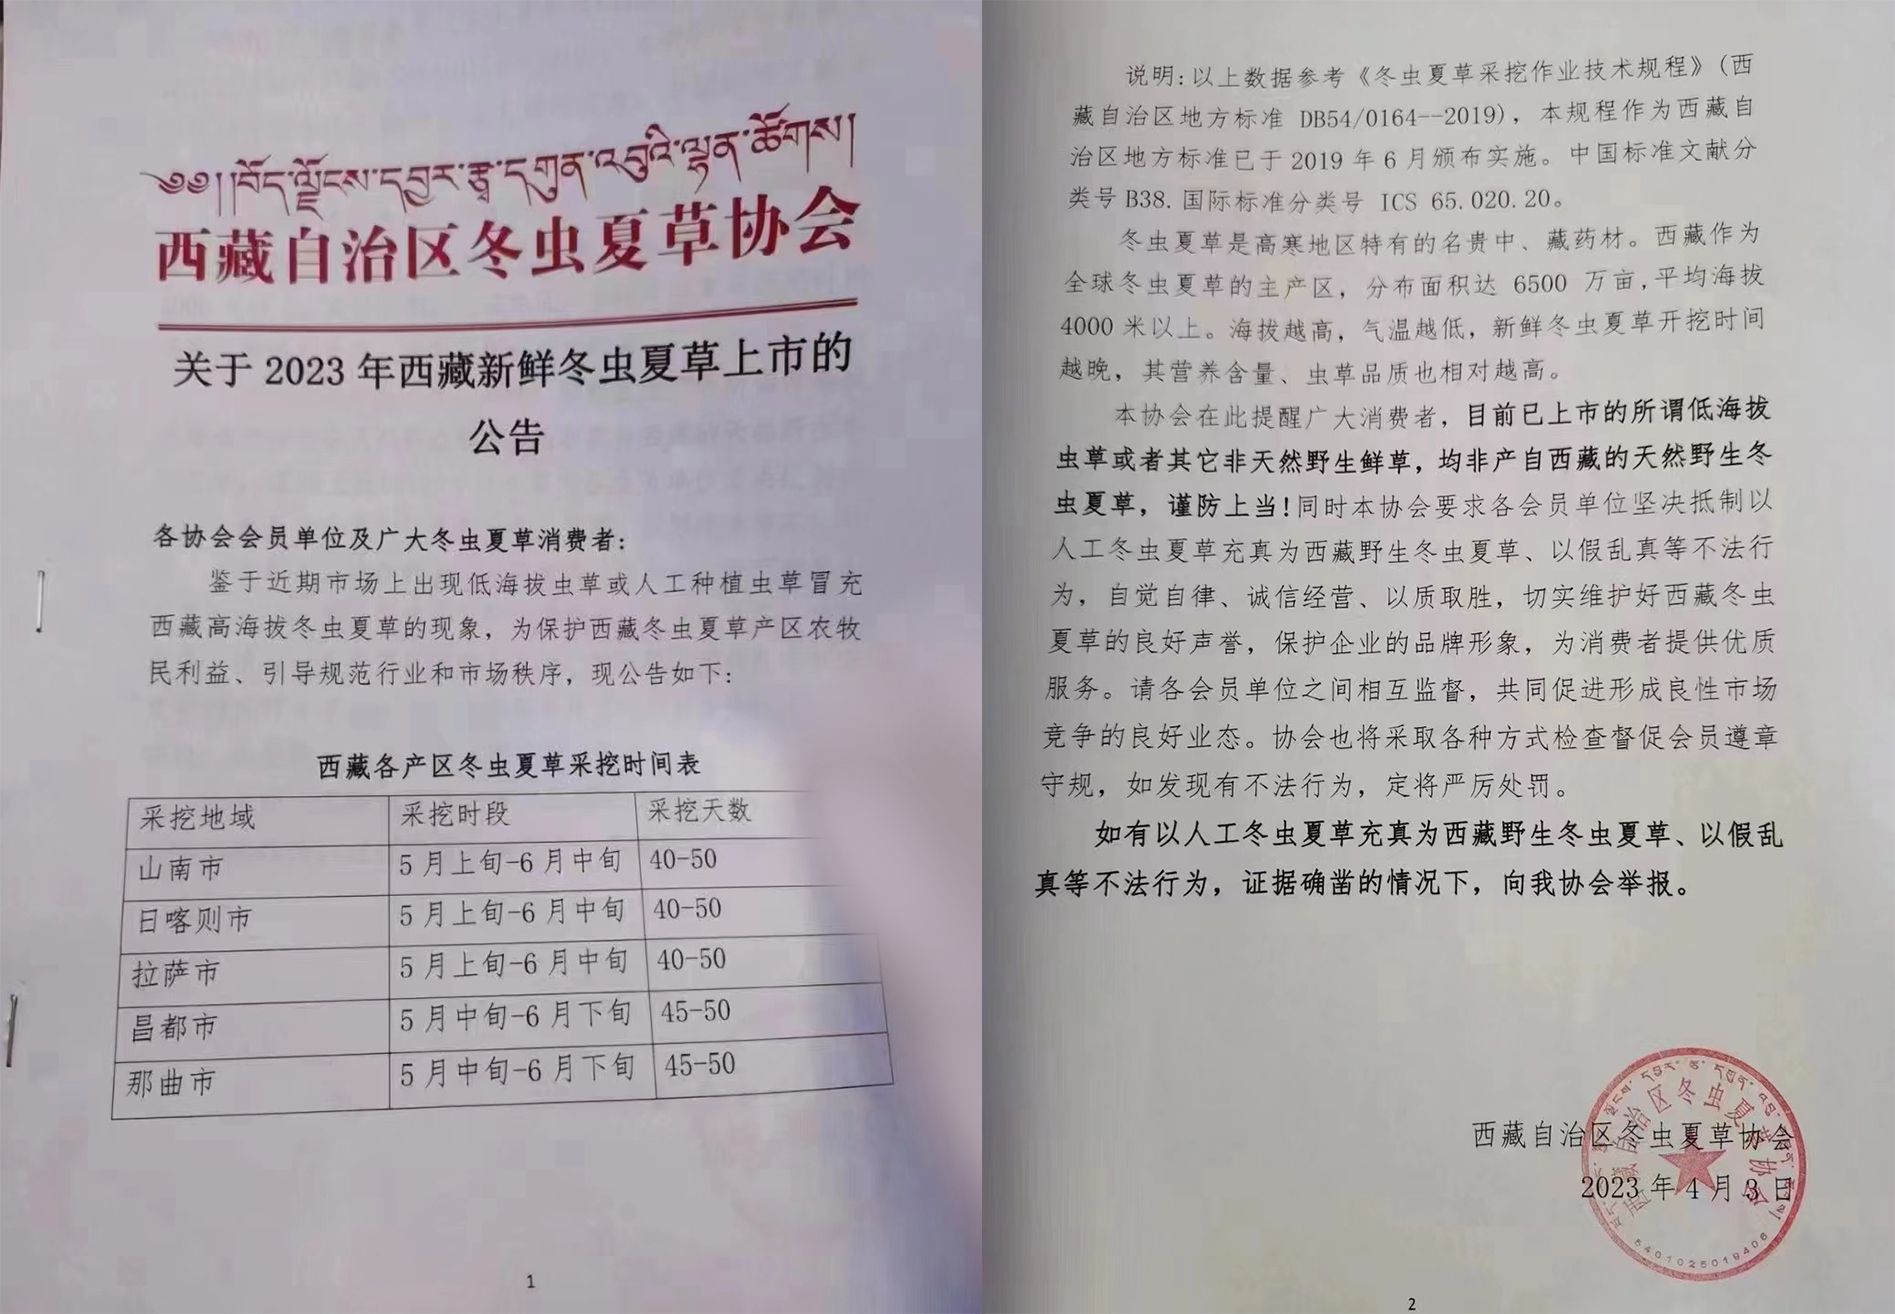 ༄༅། །བོད་ལྗོངས་དབྱར་རྩྭ་དགུན་འབུའི་ལྷན་ཚོགས།
西藏自治区冬虫夏草协会
关于 2023 年西藏新鲜冬虫夏草上市的
公告
各协会会员单位及广大冬虫夏草消费者:
鉴于近期市场上出现低海拔虫草或人工种植虫草冒充
西藏高海拔冬虫夏草的现象，为保护西藏冬虫夏草产区农牧
民利益、引导规范行业和市场秩序，现公告如下:
西藏各产区冬虫夏草采挖时间表
采挖地域 采挖时段 采挖天数
山南市 5 月上旬-6 月中旬 40-50
日喀则市 5 月上旬-6 月中旬 40-50
拉萨市 5 月上旬-6 月中旬 40-50
昌都市 5 月中旬-6 月下旬 45-50
那曲市 5 月中旬-6 月下旬 45-50
1
说明:以上数据参考《冬虫夏草采挖作业技术规程》(西
藏自治区地方标准 DB54/0164--2019)，本规程作为西藏自
治区地方标准已于 2019 年 6 月颁布实施。中国标准文献分
类号 B38.国际标准分类号 ICS 65.020.20。
冬虫夏草是高寒地区特有的名贵中、藏药材。西藏作为
全球冬虫夏草的主产区，分布面积达 6500 万亩,平均海拔
4000 米以上。海拔越高，气温越低，新鲜冬虫夏草开挖时间
越晚，其营养含量、虫草品质也相对越高。
本协会在此提醒广大消费者，目前已上市的所谓低海拔
虫草或者其它非天然野生鲜草，均非产自西藏的天然野生冬
虫夏草，谨防上当!同时本协会要求各会员单位坚决抵制以
人工冬虫夏草充真为西藏野生冬虫夏草、以假乱真等不法行
为，自觉自律、诚信经营、以质取胜，切实维护好西藏冬虫
夏草的良好声誉，保护企业的品牌形象，为消费者提供优质
服务。请各会员单位之间相互监督，共同促进形成良性市场
竞争的良好业态。协会也将采取各种方式检查督促会员遵章
守规，如发现有不法行为，定将严厉处罚。
如有以人工冬虫夏草充真为西藏野生冬虫夏草、以假乱
真等不法行为，证据确凿的情况下，向我协会举报。
西藏自治区冬虫夏草协会
2023 年 4 月 3 日
西藏自治区冬虫夏草协会
5401025019406
2